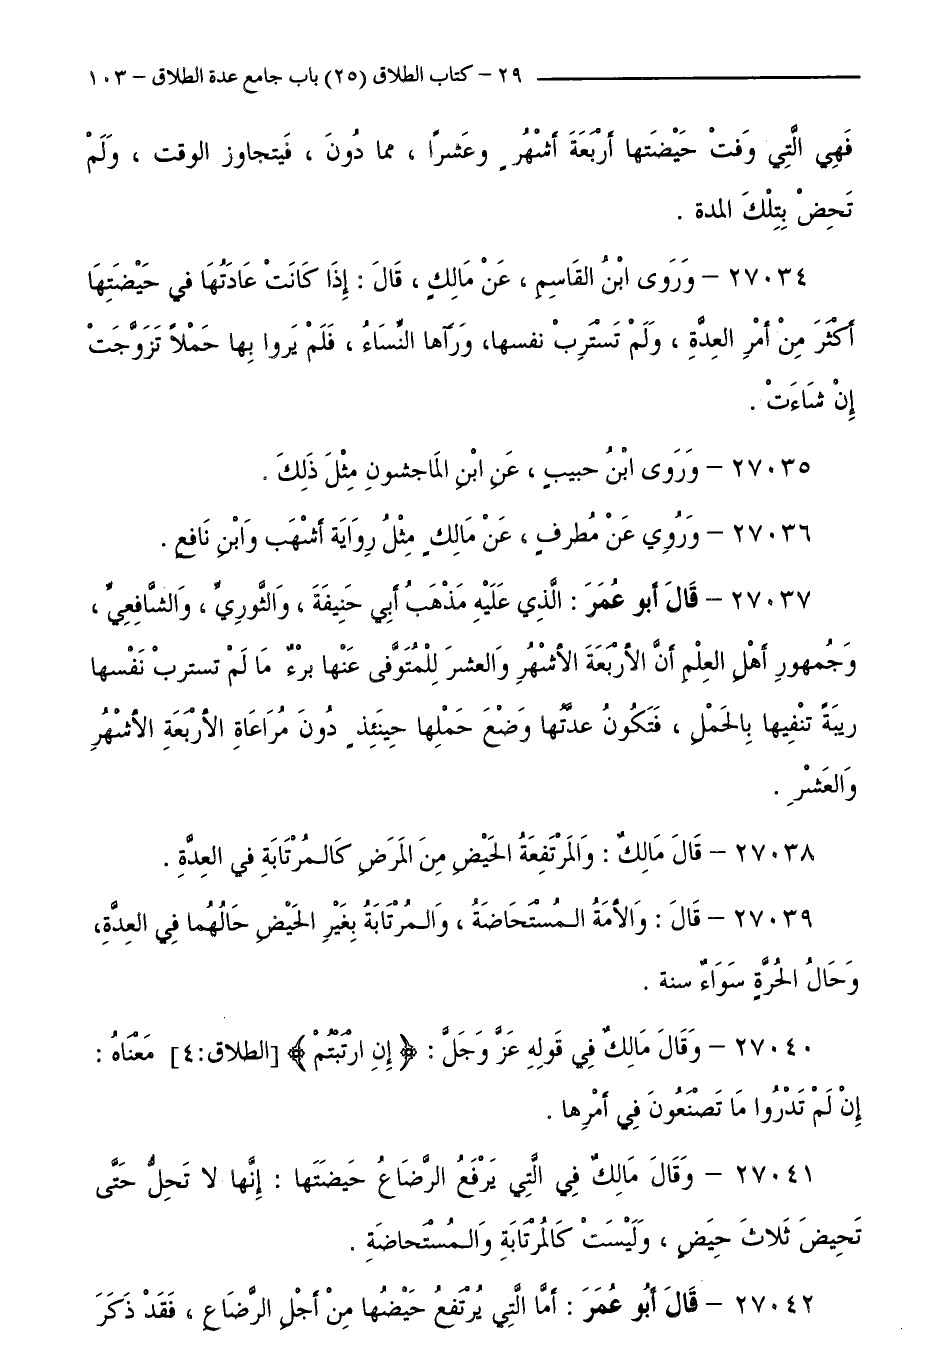 ٢٩ – كتاب الطلاق (٢٥) باب جامع عدة الطلاق – ١٠٣
فَهِي الَّتِي وَفتْ حَيْضَتها أَرْبَعَةَ أشْهُرٍ وعَشراً ، مما دُونَ ، فَيتجاوز الوقت ، ولَمْ
تَحِضْ بِتِلْكَ المدة .
٢٧٠٣٤ – وَرَوى ابْنُ القَاسِمِ ، عَنْ مَالِكٍ ، قَالَ : إِذَا كَانَتْ عَادَتُهَا في حَيْضَتِهَا
أَكْثَرَ مِنْ أمْرِ العِدَّةِ ، ولَمْ تَسْتَرِبْ نفسها، ورَآها النِّسَاءُ ، فَلَمْ يَروا بِها حَمْلاً تَزَوَّجَتْ
إِنْ شَاءَتْ .
٢٧٠٣٥ – وَرَوى ابْنُ حبيبٍ ، عَنِ ابْنِ المَاجشونِ مِثْلَ ذَلِكَ .
٢٧٠٣٦ – وَرُوِي عَنْ مُطرفٍ ، عَنْ مَالِكٍ مِثْلُ رِوَايَة أشْهَب وَابْنِ نَافعٍ .
٢٧٠٣٧ – قَالَ أبو عُمَرَ : الَّذِي عَلَيْهِ مَذْهَبُ أبِي حَنِيفَةَ ، والثَّوريِّ ، والشَّافِعِيِّ ،
وَجُمهورِ أهْلِ العِلْمِ أنَّ الأرْبَعَةَ الأشْهُرِ وَالعشرَ لِلْمُتَوَفَّى عَنْها برْءٌ مَا لَمْ تستربْ نَفْسها
ريبَةً تنْفِيها بِالحَمْلِ ، فَتَكُونُ عدَّتُها وَضْعَ حَملِها حِينَئِذٍ دُونَ مُرَاعَاةِ الأرْبَعَةِ الأشْهُرِ
وَالعَشْرِ .
٢٧٠٣٨ – قَالَ مَالِكٌ : وَالمَرْتَفِعَةُ الحَيْضِ مِنَ المَرَضِ كَالـمُرْتَابَةِ في العِدَّةِ .
٢٧٠٣٩ – قَالَ : وَالأمَةُ الـمُسْتَحَاضَةُ ، وَالـمُرْتَابَةُ بِغَيْرِ الحَيْضِ حَالُهُما فِي العِدَّةِ،
وَحَالُ الحُرَّةِ سَوَاءٌ سنة .
٢٧٠٤٠ – وَقَالَ مَالِكٌ فِي قَولِهِ عَزَّ وَجَلَّ : ﴿ إِنِ ارْتَبْتُمْ ﴾ [الطلاق:٤] مَعْنَاهُ :
إِنْ لَمْ تَدْرُوا مَا تَصْنَعُونَ فِي أمْرِها .
٢٧٠٤١ – وَقَالَ مَالِكٌ فِي الَّتِي يَرْفَعُ الرَّضَاعُ حَيضَتَها : إِنَّها لا تَحِلُّ حَتَّى
تَحِيضَ ثَلاثَ حِيَضٍ ، وَلَيْسَتْ كَالمُرْتَابَةِ وَالـمُسْتَحاضَةِ .
٢٧٠٤٢ – قَالَ أبُو عُمَرَ : أمَّا الَّتِي يُرْتَفعُ حَيْضُها مِنْ أجْلِ الرَّضَاعِ ، فَقَدْ ذَكَرَ